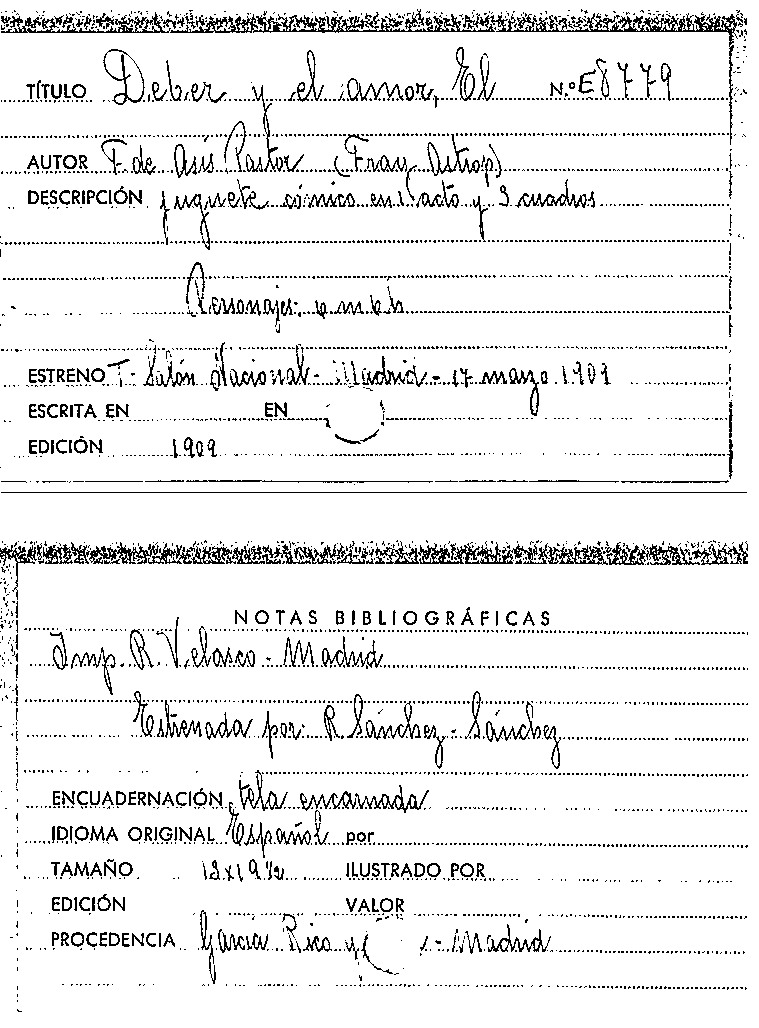 TÍTULO Deber y el amor, El N.º E8779
AUTOR F. de Asís Pastor (Fray Astrop)
DESCRIPCIÓN juguete cómico en 1 acto y 3 cuadros
Personajes: 6 m 6 h
ESTRENO T. Salón Nacional - Madrid - 17 marzo 1909
ESCRITA EN EN
EDICIÓN 1909
NOTAS BIBLIOGRÁFICAS
Imp. R. Velasco - Madrid
Estrenada por: R. Sánchez - Sánchez
ENCUADERNACIÓN tela encarnada
IDIOMA ORIGINAL Español por
TAMAÑO ILUSTRADO POR
EDICIÓN VALOR
PROCEDENCIA García Rico y - Madrid